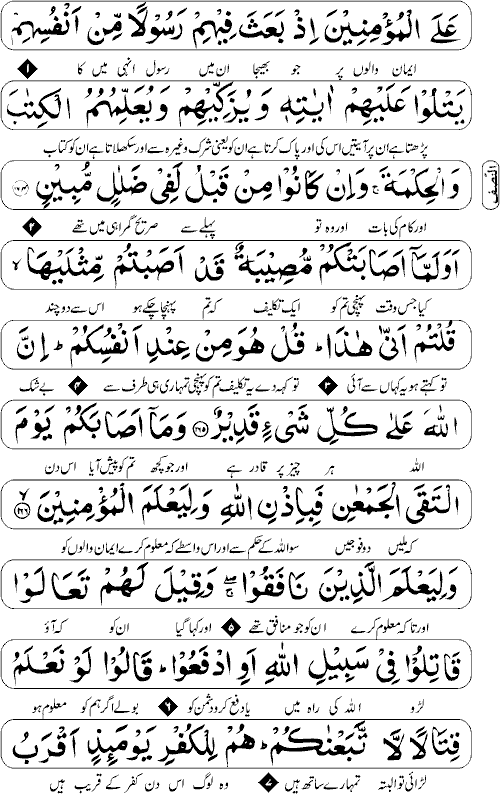 عَلَى الْمُؤْمِنِيْنَ اِذْ بَعَثَ فِيْهِمْ رَسُوْلًا مِّنْ اَنْفُسِهِمْ
ایمان والوں پر جو بھیجا ان میں رسول انہی میں کا ۱
يَتْلُوْا عَلَيْهِمْ اٰيٰتِهٖ وَيُزَكِّيْهِمْ وَيُعَلِّمُهُمُ الْكِتٰبَ
پڑھتا ہے ان پر آیتیں اس کی اور پاک کرتا ہے ان کو یعنی شرک وغیرہ سے اور سکھلاتا ہے ان کو کتاب
النصف
وَالْحِكْمَةَ ۚ وَاِنْ كَانُوْا مِنْ قَبْلُ لَفِيْ ضَلٰلٍ مُّبِيْنٍ ﴿۱۶۴﴾
اور کام کی بات اور وہ تو پہلے سے صریح گمراہی میں تھے ۲
اَوَلَمَّآ اَصَابَتْكُمْ مُّصِيْبَةٌ قَدْ اَصَبْتُمْ مِّثْلَيْهَا ۙ
کیا جس وقت پہنچی تم کو ایک تکلیف کہ تم پہنچا چکے ہو اس سے دو چند
قُلْتُمْ اَنّٰى هٰذَا ؕ قُلْ هُوَ مِنْ عِنْدِ اَنْفُسِكُمْ ؕ اِنَّ
تو کہتے ہو یہ کہاں سے آئی ۳ تو کہہ دے یہ تکلیف تم کو پہنچی تمہاری ہی طرف سے ۴ بے شک
اللّٰهَ عَلٰى كُلِّ شَيْءٍ قَدِيْرٌ ﴿۱۶۵﴾ وَمَآ اَصَابَكُمْ يَوْمَ
اللہ ہر چیز پر قادر ہے اور جو کچھ تم کو پیش آیا اس دن
الْتَقَى الْجَمْعٰنِ فَبِاِذْنِ اللّٰهِ وَلِيَعْلَمَ الْمُؤْمِنِيْنَ ﴿۱۶۶﴾ ۙ
کہ ملیں دو فوجیں سو اللہ کے حکم سے اور اس واسطے کہ معلوم کرے ایمان والوں کو
وَلِيَعْلَمَ الَّذِيْنَ نَافَقُوْا ۖۚ وَقِيْلَ لَهُمْ تَعَالَوْا
اور تاکہ معلوم کرے ان کو جو منافق تھے ۵ اور کہا گیا ان کو کہ آؤ
قَاتِلُوْا فِيْ سَبِيْلِ اللّٰهِ اَوِ ادْفَعُوْا ؕ قَالُوْا لَوْ نَعْلَمُ
لڑو اللہ کی راہ میں یا دفع کرو دشمن کو ۶ بولے اگر ہم کو معلوم ہو
قِتَالًا لَّا تَّبَعْنٰكُمْ ؕ هُمْ لِلْكُفْرِ يَوْمَئِذٍ اَقْرَبُ
لڑائی تو البتہ تمہارے ساتھ ہیں ۷ وہ لوگ اس دن کفر کے قریب ہیں